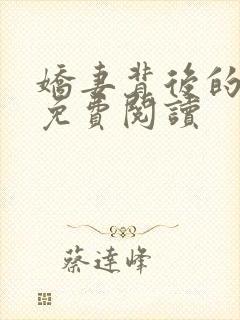 嬌妻背後的
免費閱讀
蔡達峰